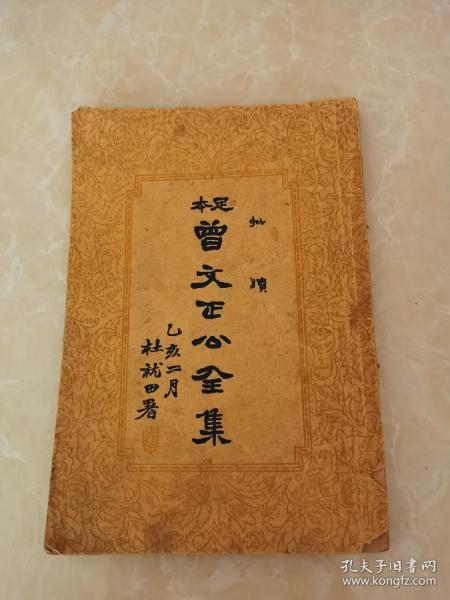 批牘
足本
曾文正公全集
乙亥二月
杜就田署
孔夫子旧书网
www.kongfz.com